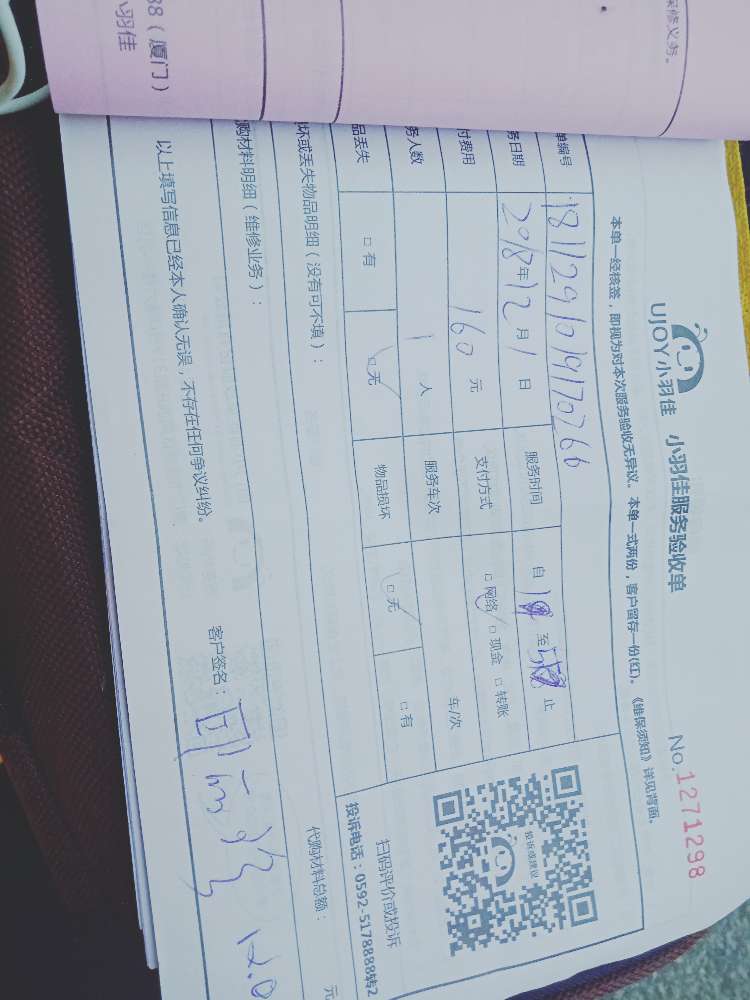 保修义务。
88（厦门）
小羽佳
UJOY小羽佳 小羽佳服务验收单
No.1271298
本单一经核签，即视为对本次服务验收无异议。本单一式两份，客户留存一份(红)。《维保须知》详见背面。
单编号 1811291019170266
务日期 2018年12月1日 服务时间 自 至 止
付费用 160元 支付方式 □网络 □现金 □转账
务人数 1人 服务车次 车/次
品丢失 □有 □无 物品损坏 □无 □有
投诉或建议
扫码评价或投诉
投诉电话：0592-5178888转2
损坏或丢失物品明细（没有可不填）：
购材料明细（维修业务）：
代购材料总额： 元
以上填写信息已经本人确认无误，不存在任何争议纠纷。
客户签名： 12.0